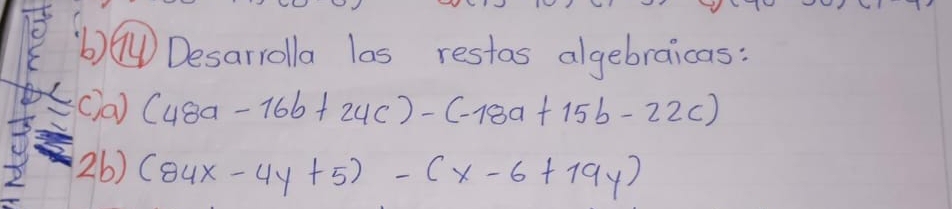 b) 14 Desarrolla las restas algebraicas:
c) a) (48a - 16b + 24c) - (-18a + 15b - 22c)
2b) (84x - 4y + 5) - (x - 6 + 19y)